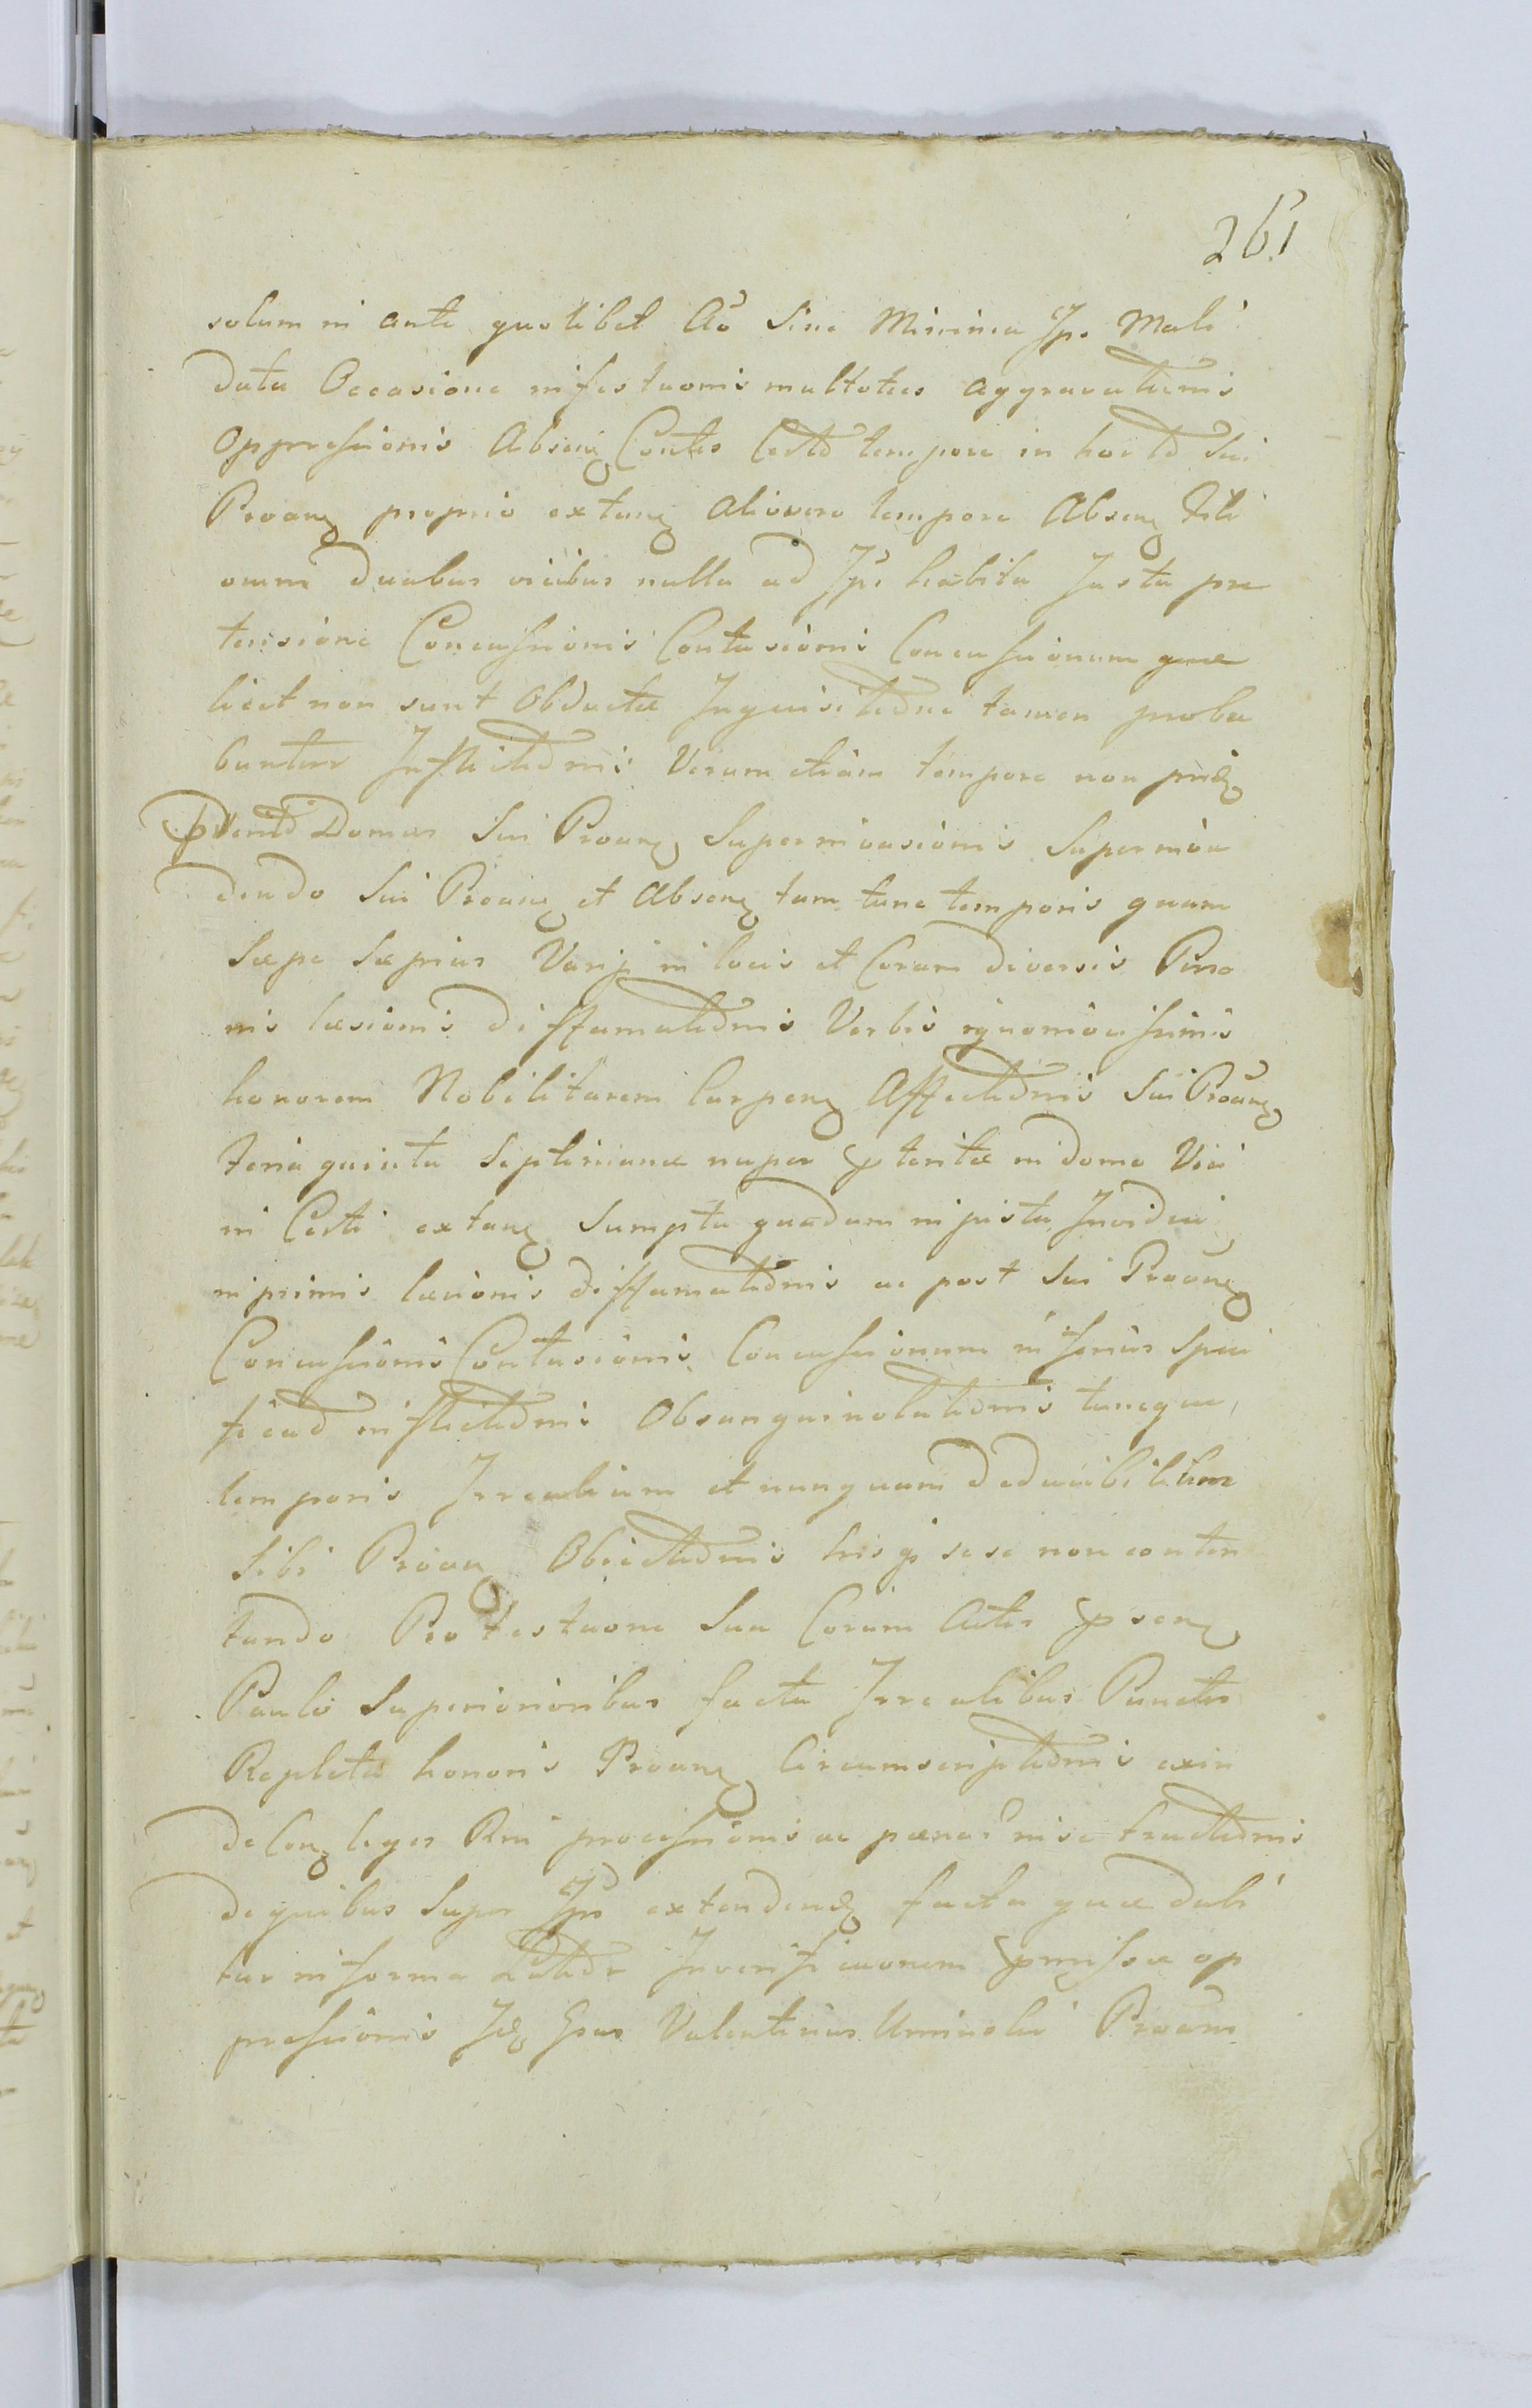 261
solum in ante quolibet Ao sine Minima Jpi Mali
data Occasione infestaonis multoties aggravaturis
Oppressionis Absenq Contes tempore in horto sui
Proanq proprio extanq aliovero tempore Absenq
duabus vicibus nulla ad Jpi habita Justa prae
tensione Concussionis Contusionis Concussionum quae
licet non sunt Obductae Inquisitione tamen proba
buntur Inflictionis Verum etiam tempore non
Domus sui Proanq Superinvasionis Superinva
dendo sui Proanq et Absenq tam tunc temporis quam
saepe saepius Varijs in locis et Coram diversis Perso
nis laesionis diffamationis Verbis ignominiosissimis
honorem Nobilitarem Carpenq Affectionis sui Proanq
feria quinta septimanae nuper pteritae in domo Vici
ni Certi extanq sumpta quadam injusta Invidia
inprimis laesionis diffamationis ac post sui Proanq
Concussionis Contusionis Concussionum inferius speci
ficad inflictionis Obsanguinolationis tuncque
temporis Irrealium et nunquam deducibilium
sibi Proanq Objectionis hisq sese non conten
tando Protestaone sua Coram Actis psenq
Paulo Superiorioribus facta Irrealibus Punctis
Repleta honoris Proanq Circumscriptionis exin
de Conq leges Rni processionis ac paenas in se tractionis
de quibus super Jpo extendenq facta quae dabi
tur in forma Inverificaonem pmissae op
pressionis Jdq Gsus Valentinus Uminski Proans